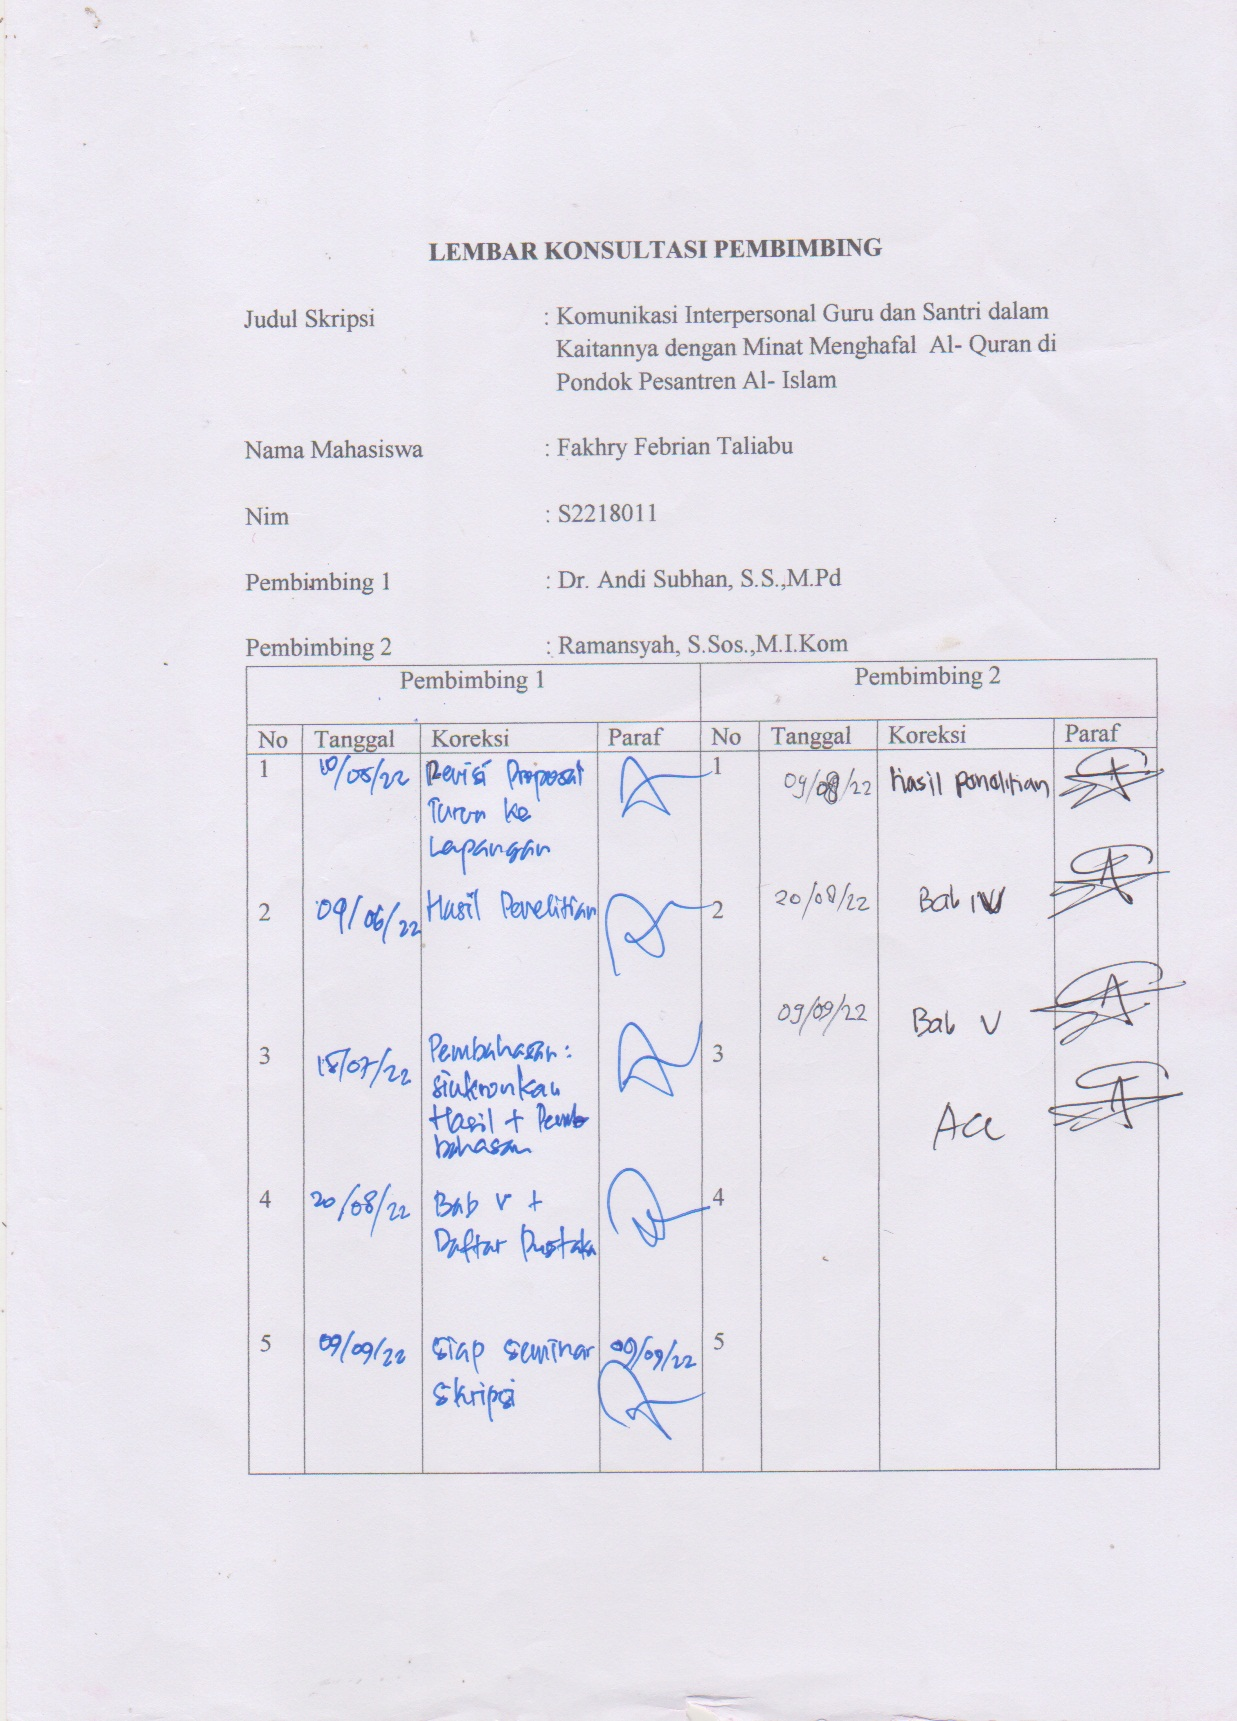 LEMBAR KONSULTASI PEMBIMBING
Judul Skripsi : Komunikasi Interpersonal Guru dan Santri dalam
Kaitannya dengan Minat Menghafal Al- Quran di
Pondok Pesantren Al- Islam
Nama Mahasiswa : Fakhry Febrian Taliabu
Nim : S2218011
Pembimbing 1 : Dr. Andi Subhan, S.S.,M.Pd
Pembimbing 2 : Ramansyah, S.Sos.,M.I.Kom
Pembimbing 1 Pembimbing 2
No Tanggal Koreksi Paraf No Tanggal Koreksi Paraf
1 10/05/22 Revisi Proposal 1 09/08/22 Hasil Penelitian
Turun ke
Lapangan
2 09/06/22 Hasil Penelitian 2 20/08/22 Bab IV
09/09/22 Bab V
3 18/07/22 Pembahasan: 3
sinkronkan
Hasil + Pemba
bahasan
Acc
4 20/08/22 Bab V + 4
Daftar Pustaka
5 09/09/22 Siap Seminar 09/09/22 5
Skripsi